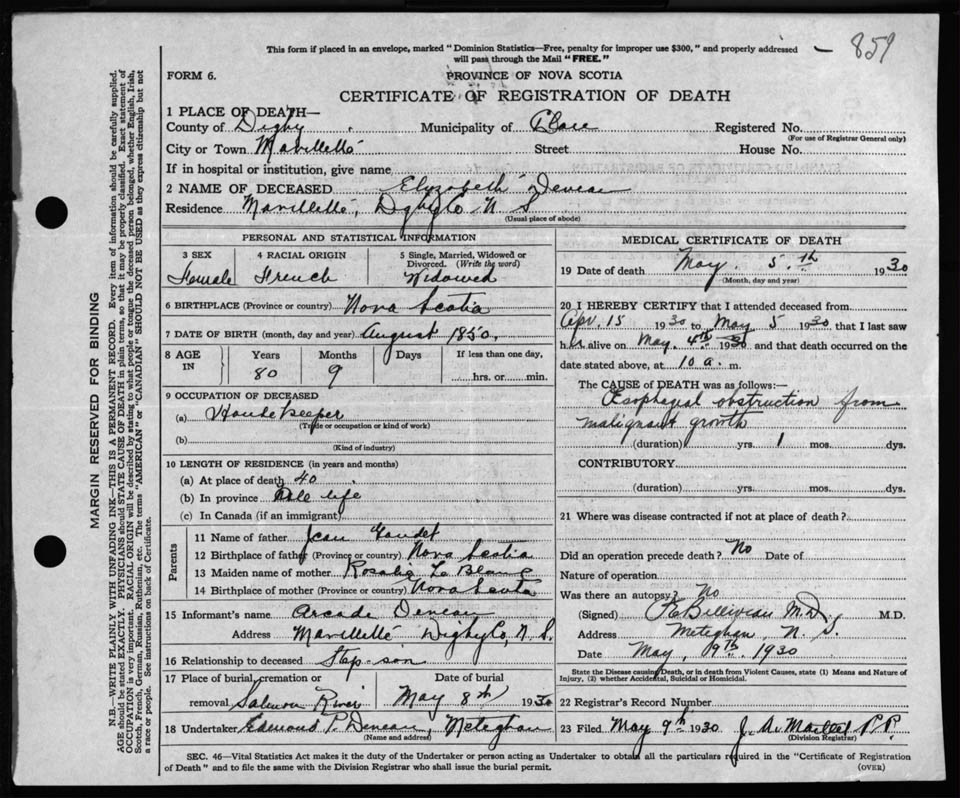 859
This form if placed in an envelope, marked "Dominion Statistics—Free, penalty for improper use $300," and properly addressed
will pass through the Mail "FREE."
FORM 6.
PROVINCE OF NOVA SCOTIA
CERTIFICATE OF REGISTRATION OF DEATH
1 PLACE OF DEATH—
County of Digby Municipality of Clare Registered No.
(For use of Registrar General only)
City or Town Mavillette Street House No.
If in hospital or institution, give name
2 NAME OF DECEASED Elyzabeth Deveau
Residence Mavillette, Digby Co N S
(Usual place of abode)
PERSONAL AND STATISTICAL INFORMATION
3 SEX 4 RACIAL ORIGIN 5 Single, Married, Widowed or
Divorced. (Write the word)
Female French Widowed
6 BIRTHPLACE (Province or country) Nova Scotia
7 DATE OF BIRTH (month, day and year) August 1850.
8 AGE IN Years Months Days If less than one day,
80 9 hrs. or min.
9 OCCUPATION OF DECEASED
(a) Housekeeper
(Trade or occupation or kind of work)
(b)
(Kind of industry)
10 LENGTH OF RESIDENCE (in years and months)
(a) At place of death 40
(b) In province All life
(c) In Canada (if an immigrant)
Parents
11 Name of father Jean Gaudet
12 Birthplace of father (Province or country) Nova Scotia
13 Maiden name of mother Rosalie Le Blanc
14 Birthplace of mother (Province or country) Nova Scotia
15 Informant's name Arcade Deveau
Address Mavillette Digby Co, N. S.
16 Relationship to deceased Step-son
17 Place of burial, cremation or Date of burial
removal Salmon River May 8th 1930
18 Undertaker Edmond P. Deveau, Meteghan
(Name and address)
MEDICAL CERTIFICATE OF DEATH
19 Date of death May 5th 1930
(Month, day and year)
20 I HEREBY CERTIFY that I attended deceased from
Apr. 15 1930 to May 5 1930 that I last saw
her alive on May 4th 1930 and that death occurred on the
date stated above, at 10 a. m.
The CAUSE OF DEATH was as follows:—
Esophagial obstruction from
malignant growth
(duration) yrs. 1 mos. dys.
CONTRIBUTORY
(duration) yrs. mos. dys.
21 Where was disease contracted if not at place of death?
Did an operation precede death? No Date of
Nature of operation
Was there an autopsy? No
(Signed) Belliveau M.D M.D.
Address Meteghan, N. S.
Date May, 9th. 1930
State the Disease causing Death, or in death from Violent Causes, state (1) Means and Nature of
Injury, (2) whether Accidental, Suicidal or Homicidal.
22 Registrar's Record Number
23 Filed May 9th 1930 J. A. P.P.
(Division Registrar)
SEC. 46—Vital Statistics Act makes it the duty of the Undertaker or person acting as Undertaker to obtain all the particulars required in the "Certificate of Registration
of Death" and to file the same with the Division Registrar who shall issue the burial permit.
(OVER)
MARGIN RESERVED FOR BINDING
N.B.—WRITE PLAINLY WITH UNFADING INK—THIS IS A PERMANENT RECORD. Every item of information should be carefully supplied.
AGE should be stated EXACTLY. PHYSICIANS should STATE CAUSE OF DEATH in plain terms, so that it may be properly classified. Exact statement of
OCCUPATION is very important. RACIAL ORIGIN will be described by stating to what people or tongue the deceased person belonged, whether English, Irish,
Scotch, French, German, Russian, Ruthenian, etc. The terms "AMERICAN" or "CANADIAN" SHOULD NOT BE USED as they express citizenship but not
a race or people. See instructions on back of Certificate.